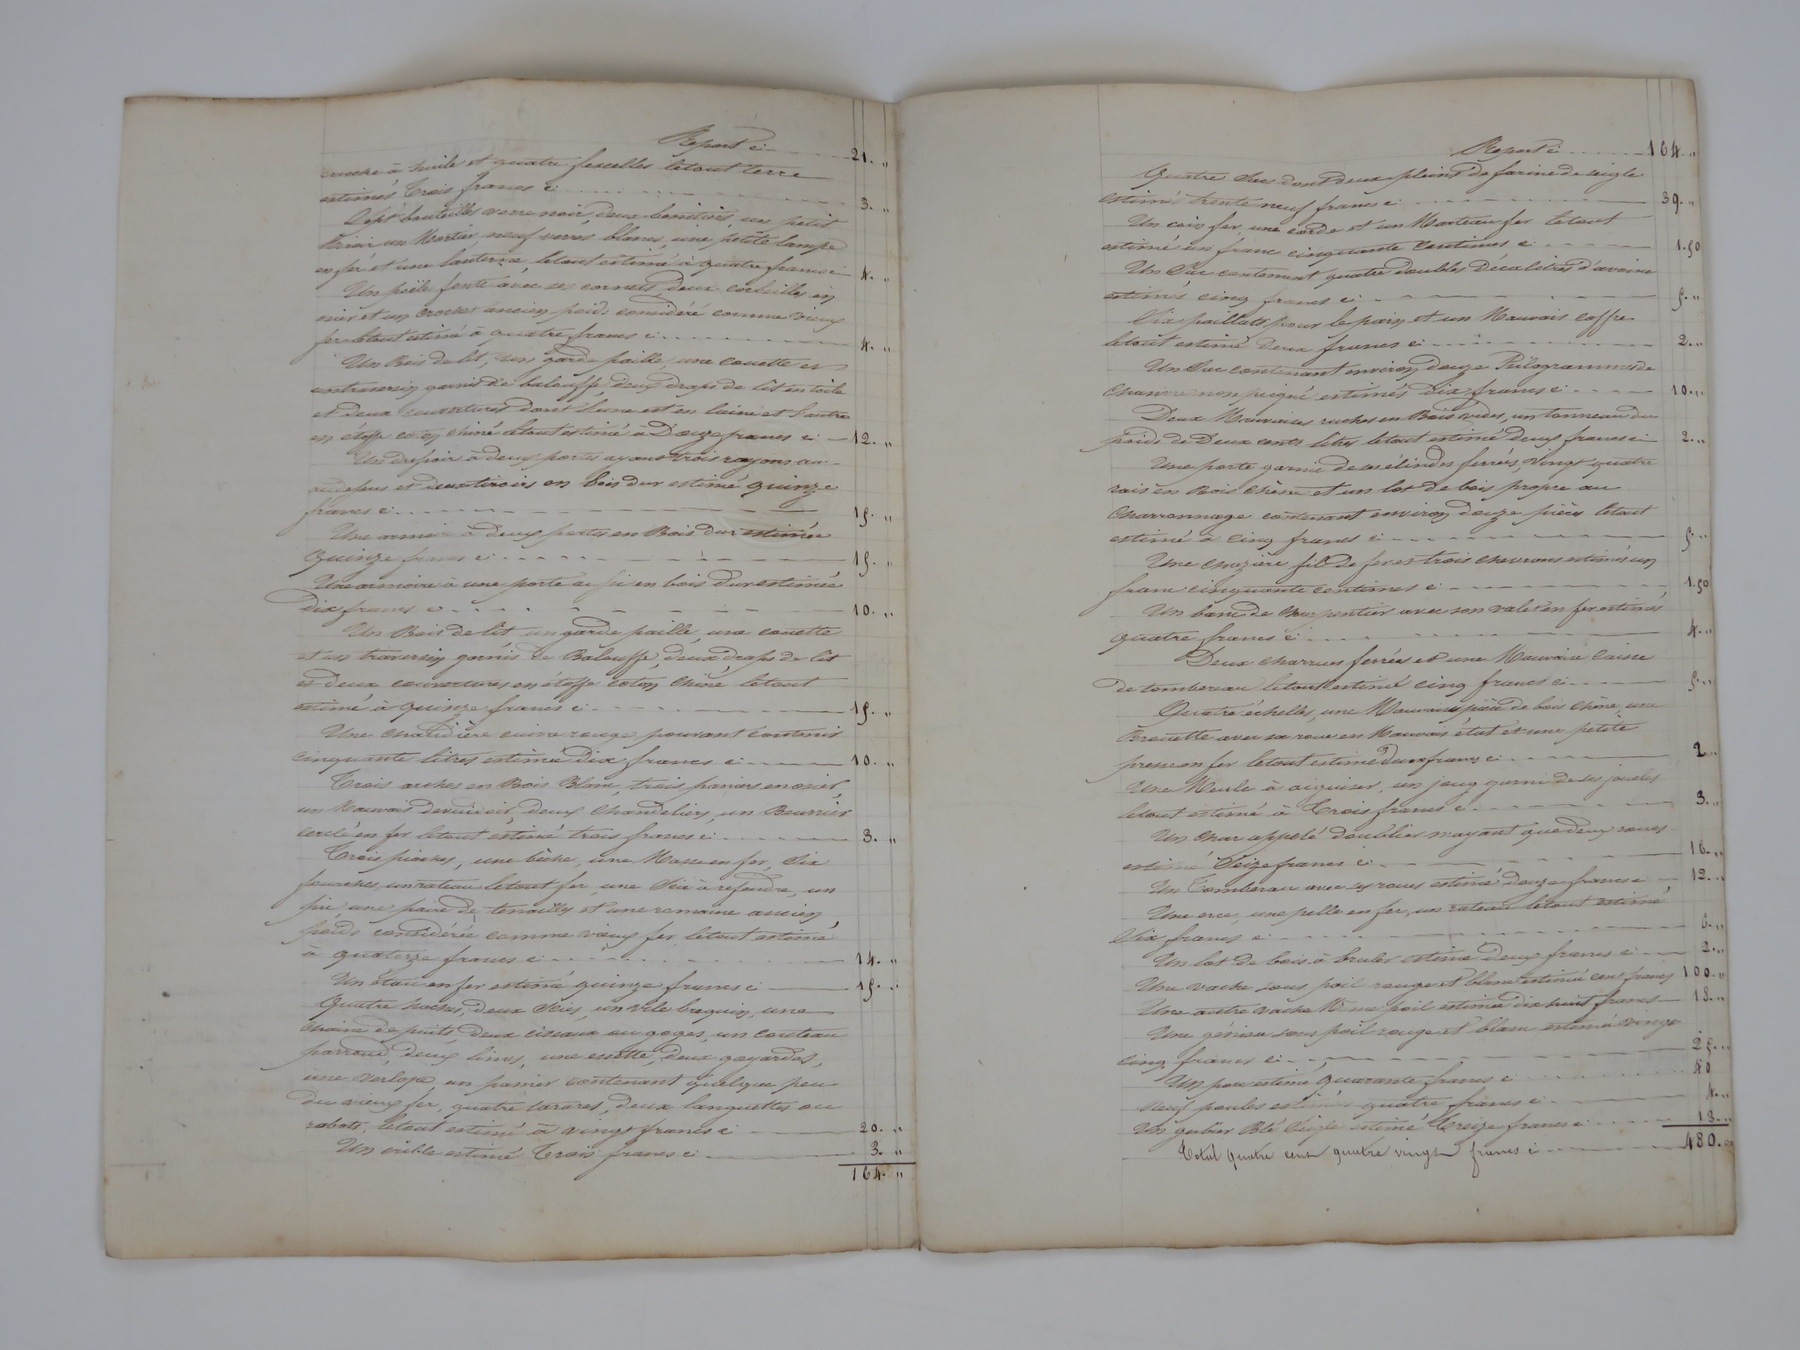 Report ci 21. "
cruche à huile et quatre fescelles letout terre
estimés Trois francs ci 3. "
Sept bouteilles verre noir, deux benitiers, un petit
un Mortier, neuf verres blancs, une petite lampe
en fer et une lanterne letout estimé à quatre francs ci 4. "
Un poële fonte avec ses cornets, deux corbeilles en
osier et un crochet ancien poids considéré comme vieux
fer letout estimé à quatre francs ci 4. "
Un Bois de lit, un garde paille, une couette et
un traversin garnis de balouffe, deux draps de lit en toile
et deux couvertures dont l'une est en laine et l'autre
en étoffe coton chiné letout estimé à Douze francs ci 12. "
Un dresoir à deux portes ayant trois rayons au
audessus et deux tiroirs en bois dur estimé quinze
francs ci 15. "
Une armoire à deux portes en Bois dur estimée
Quinze francs ci 15. "
Une armoire à une porte aussi en bois dur estimée
dix francs ci 10. "
Un Bois de lit, un garde paille, une couette
et un traversin garnis de Balouffe, deux draps de lit
et deux couvertures en étoffe coton chiné letout
estimé à quinze francs ci 15. "
Une chaudière cuivre rouge pouvant contenir
cinquante litres estimée dix francs ci 10. "
Trois arches en Bois Blanc, trois paniers en osier,
un Mauvais devidoir, deux chandeliers, un Beurrier
cerclé en fer letout estimé trois francs ci 3. "
Trois pioches, une bèche, une Masse en fer, Six
fourches, un rateau letout fer, une Scie à refendre, un
une paire de tenailles et une romaine ancien
poids considérée comme vieux fer, letout estimé
à quatorze francs ci 14. "
Un étau en fer estimé quinze francs ci 15. "
Quatre haches, deux Scies, un vilebrequin, une
chaine de puits, deux ciseaux ou goges, un couteau
deux limes, une essette, deux goyardes,
une varlope, un panier contenant quelque peu
du vieux fer, quatre tarares, deux languettes ou
rabots, letout estimé à vingt francs ci 20. "
Un crible estimé Trois francs ci 3. "
164. "
Report ci 164. "
Quatre Sacs dont deux pleins de farine de seigle
estimés trente neuf francs ci 39. "
Un coin fer, une corde et un Marteau fer letout
estimé un franc cinquante centimes ci 1.50
Un Sac contenant quatre doubles Décalitres d'avoine
estimés cinq francs ci 5. "
Six paillats pour le pain et un Mauvais coffre
letout estimé deux francs ci 2. "
Un Sac contenant environ douze Kilogrammes de
chanvre non peigné estimés Dix francs ci 10. "
Deux Mauvaises ruches en Bois vides, un tonneau du
poids de Deux cents litres letout estimé deux francs ci 2. "
Une porte garnie de ses élindes ferrés, vingt quatre
rais en Bois chêne et un lot de bois propre au
charronnage contenant environ douze pièces letout
estimé à cinq francs ci 5. "
Une chazière fil de fer et trois chevrons estimés un
franc cinquante centimes ci 1.50
Un banc de charpentier avec son valet en fer estimés
quatre francs ci 4. "
Deux charrues ferrées et une Mauvaise caisse
de tombereau letout estimé cinq francs ci 5. "
Quatre échelles, une Mauvaise pièce de bois chêne, une
Brouette avec sa roue en Mauvais état et une petite
presson fer letout estimé deux francs ci 2. "
Une Meule à aiguiser, un joug garni de ses joucles
letout estimé à Trois francs ci 3. "
Un char appelé doublier n'ayant que deux roues
estimé Seize francs ci 16. "
Un Tombereau avec ses roues estimé douze francs ci 12. "
Une erce, une pelle en fer, un rateau letout estimé
Six francs ci 6. "
Un lot de bois à bruler estimé deux francs ci 2. "
Une vache sous poil rouge et blanc estimée cent francs 100. "
Une autre vache même poil estimée dix huit francs 18. "
Une génisse sous poil rouge et blanc estimée vingt
cinq francs ci 25. "
Un porc estimé quarante francs ci 40
Neuf poules estimées quatre francs ci 4. "
Un gerbier Blé Seigle estimé Treize francs ci 13. "
Total quatre cent quatre vingt francs ci 480. "